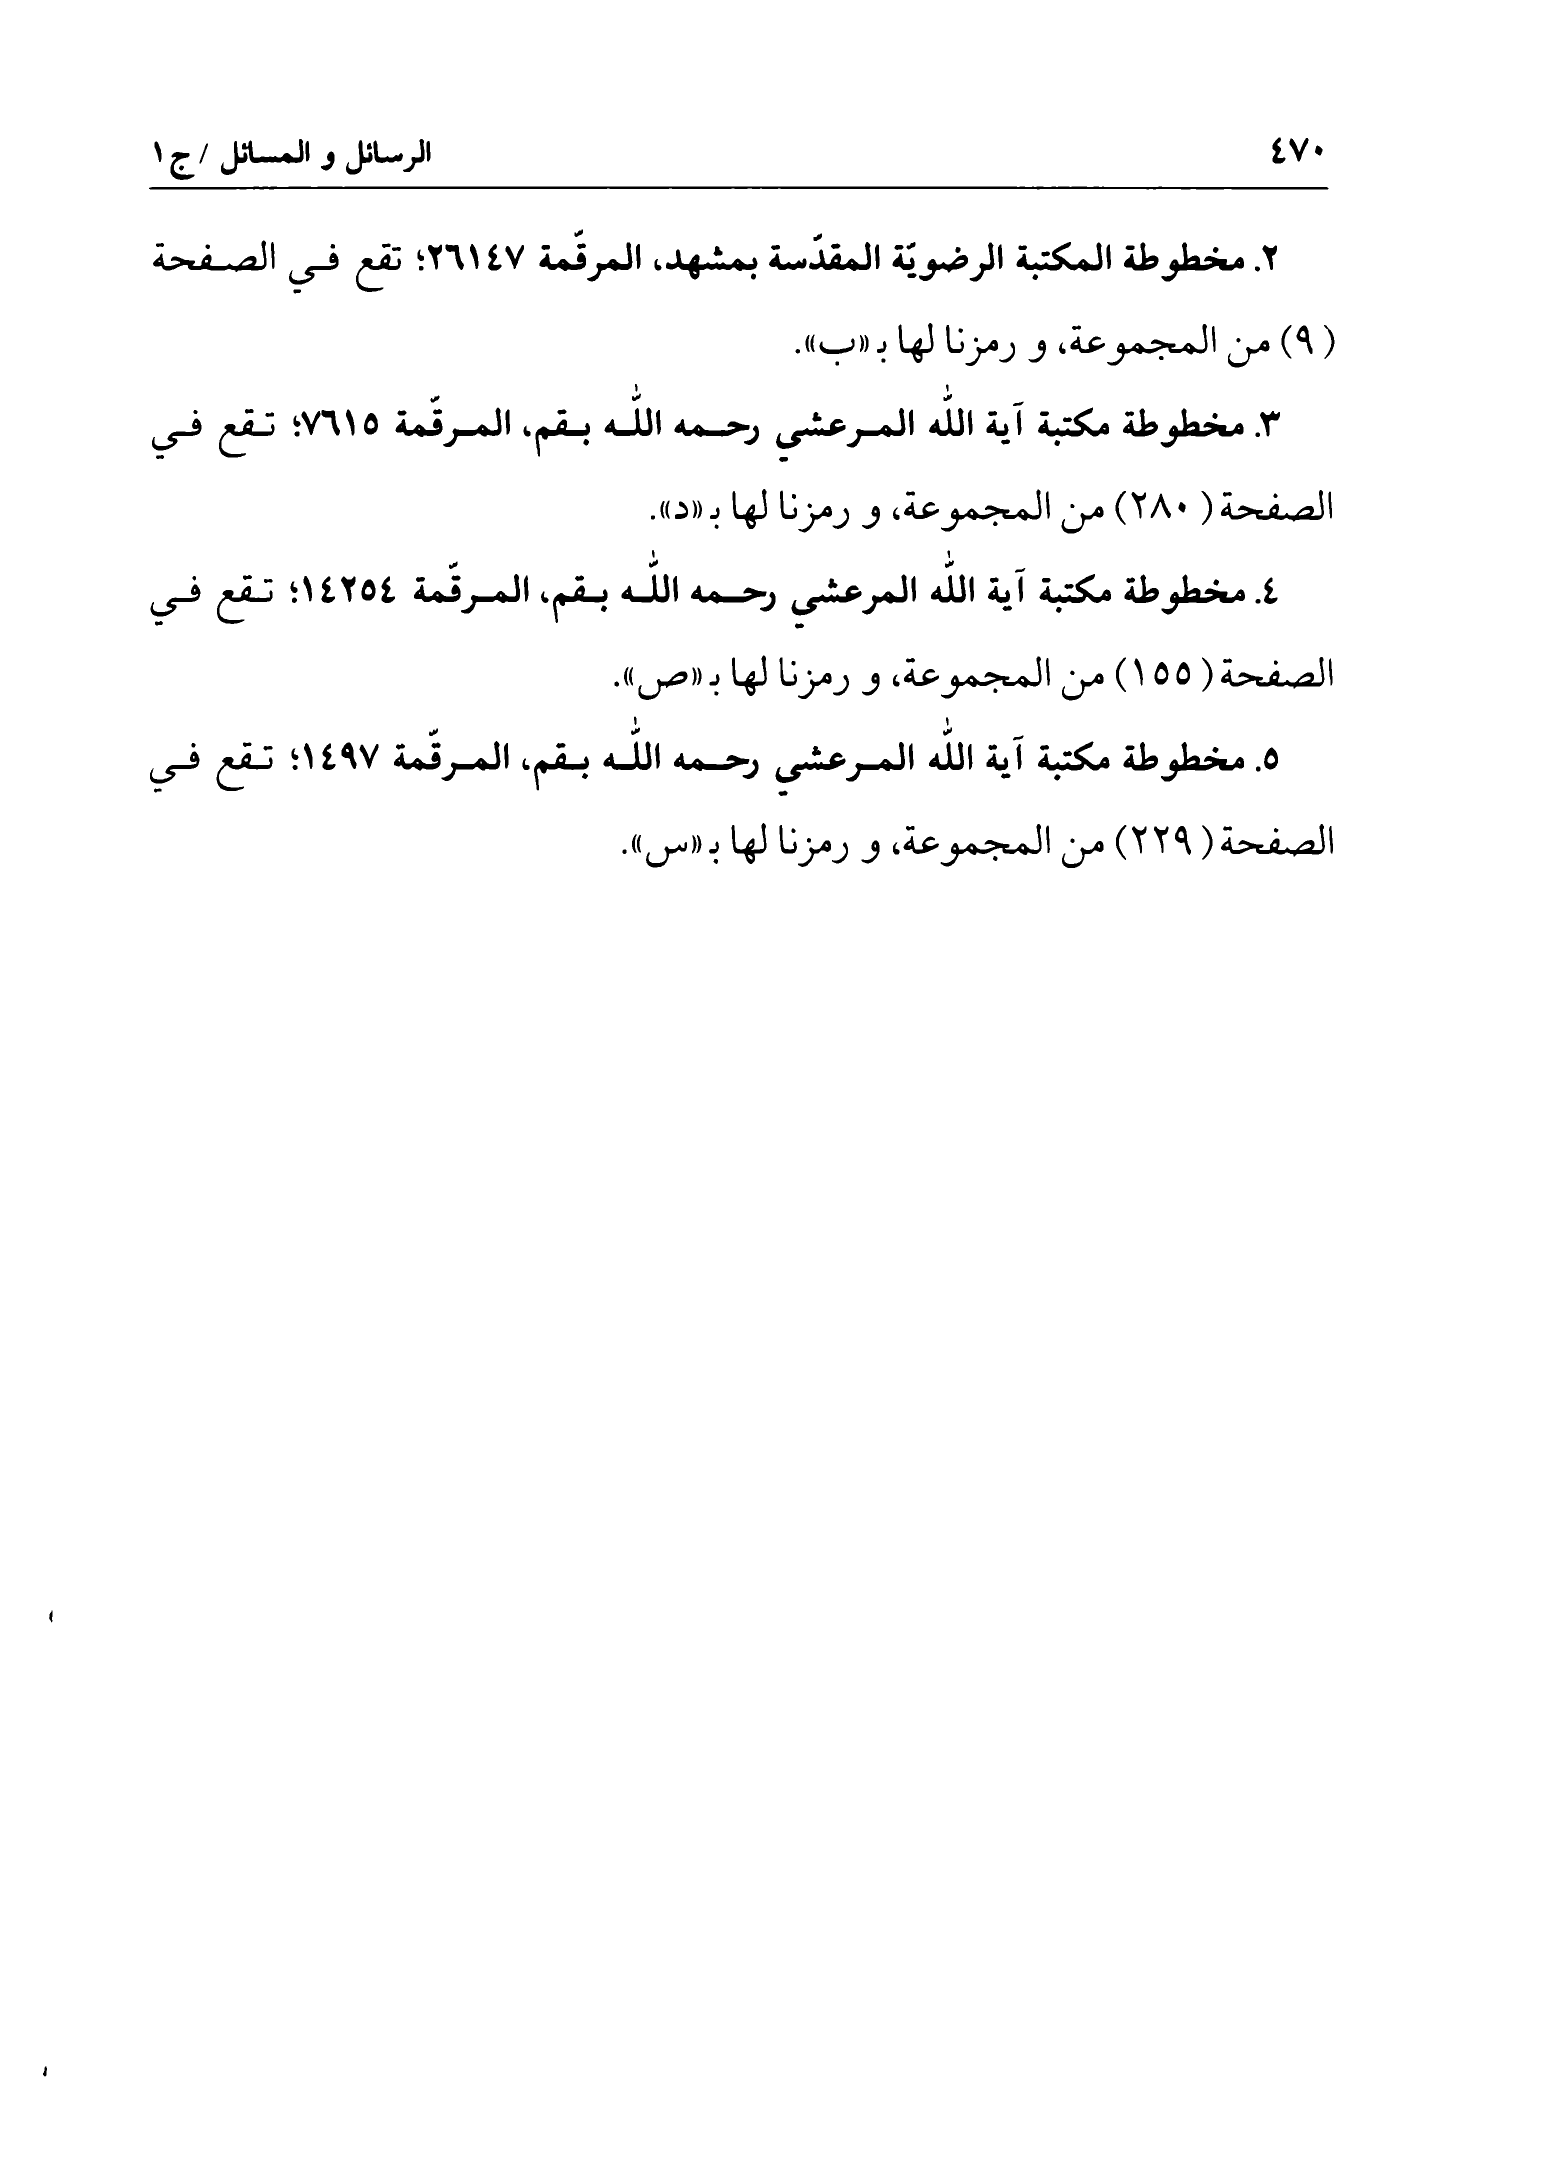 ٤٧٠ الرسائل و المسائل / ج١
٢. مخطوطة المكتبة الرضويّة المقدّسة بمشهد، المرقّمة ٢٦١٤٧؛ تقع في الصفحة
(٩) من المجموعة، و رمزنا لها بـ «ب».
٣. مخطوطة مكتبة آية اللّٰه المرعشي رحمه اللّٰه بقم، المرقّمة ٧٦١٥؛ تقع في
الصفحة (٢٨٠) من المجموعة، و رمزنا لها بـ «د».
٤. مخطوطة مكتبة آية اللّٰه المرعشي رحمه اللّٰه بقم، المرقّمة ١٤٢٥٤؛ تقع في
الصفحة (١٥٥) من المجموعة، و رمزنا لها بـ «ص».
٥. مخطوطة مكتبة آية اللّٰه المرعشي رحمه اللّٰه بقم، المرقّمة ١٤٩٧؛ تقع في
الصفحة (٢٢٩) من المجموعة، و رمزنا لها بـ «س».